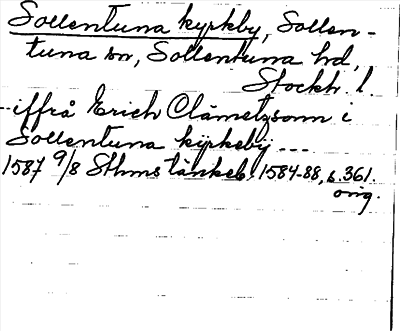 Sollentuna kyrkby, Sollen-
tuna sn, Sollentuna hd,
Stockh. l.
--iffrå Erich Clåmetzsonn i
Sollentuna kÿrkebÿ ---
1587 9/8 Sthms tänkeb. 1584-88, s. 361.
orig.